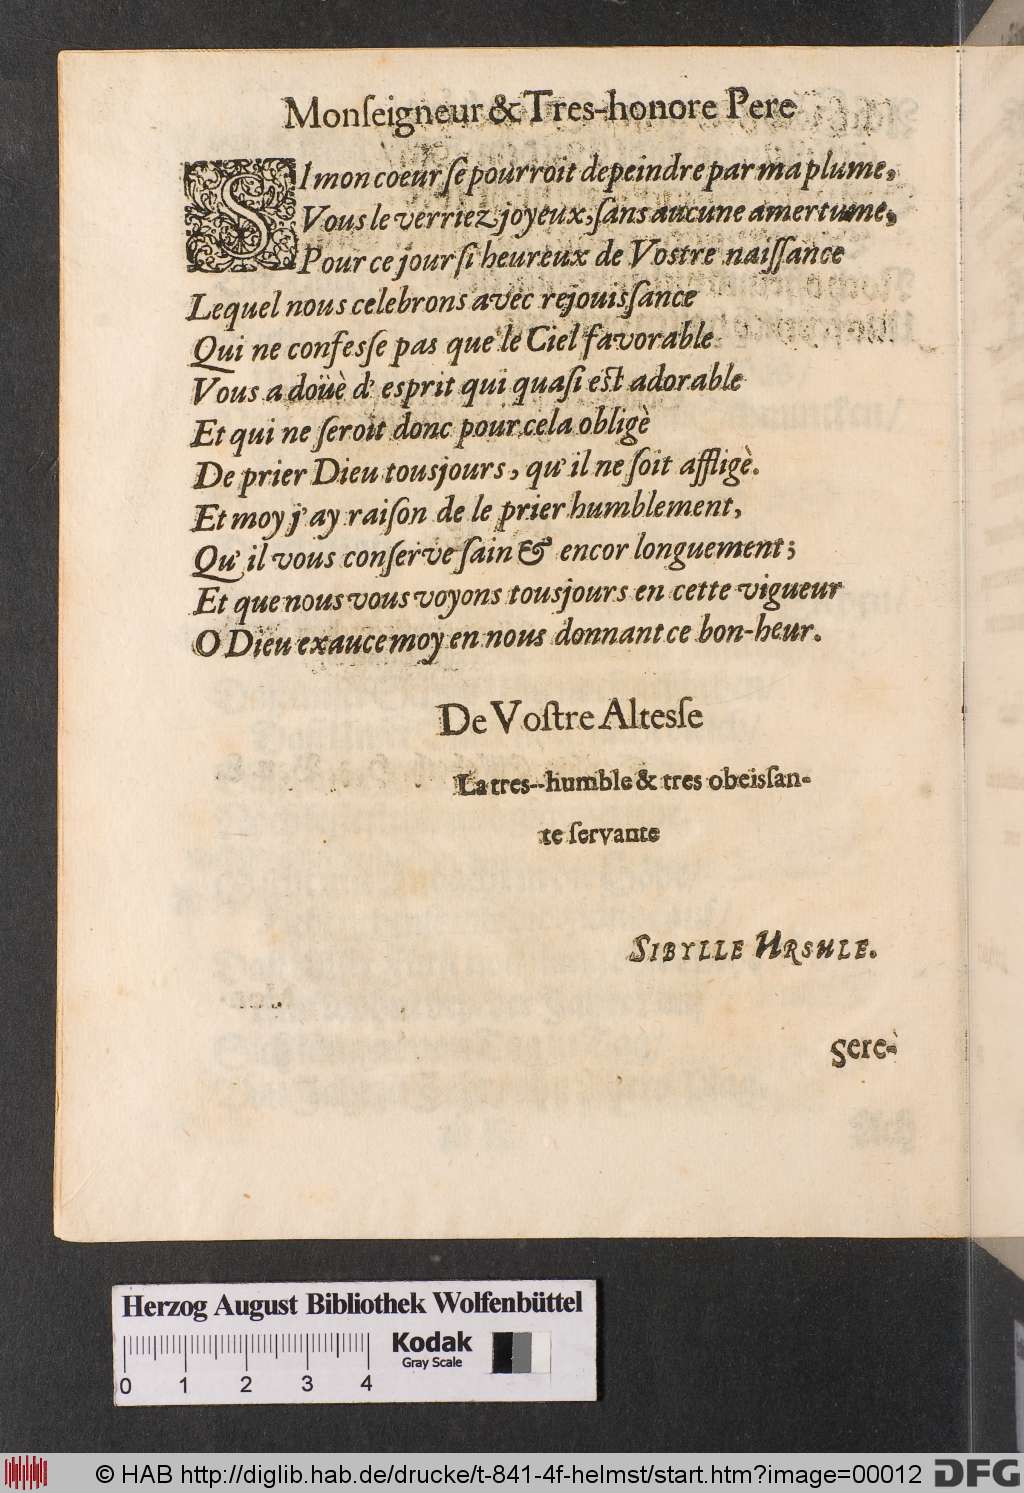 Monſeigneur & Tres-honore Pere
SI mon coeur ſe pourroit depeindre par ma plume,
Vous le verriez joyeux, ſans aucune amertume,
Pour ce jour ſi heureux de Vostre naiſſance
Lequel nous celebrons avec rejouisſance
Qui ne confesſe pas que le Ciel favorable
Vous a doüè d' esprit qui quaſi est adorable
Et qui ne ſeroit donc pour cela obligè
De prier Dieu tousjours, qu' il ne ſoit affligè.
Et moy j' ay raiſon de le prier humblement,
Qu' il vous conſerve ſain & encor longuement;
Et que nous vous voyons tousjours en cette vigueur
O Dieu exauce moy en nous donnant ce bon-heur.
De Voſtre Altesſe
La tres--humble & tres obeisſan-
te ſervante
SIBYLLE URSULE.
Sere-
Herzog August Bibliothek Wolfenbüttel
Kodak
Gray Scale
0 1 2 3 4
© HAB http://diglib.hab.de/drucke/t-841-4f-helmst/start.htm?image=00012
DFG